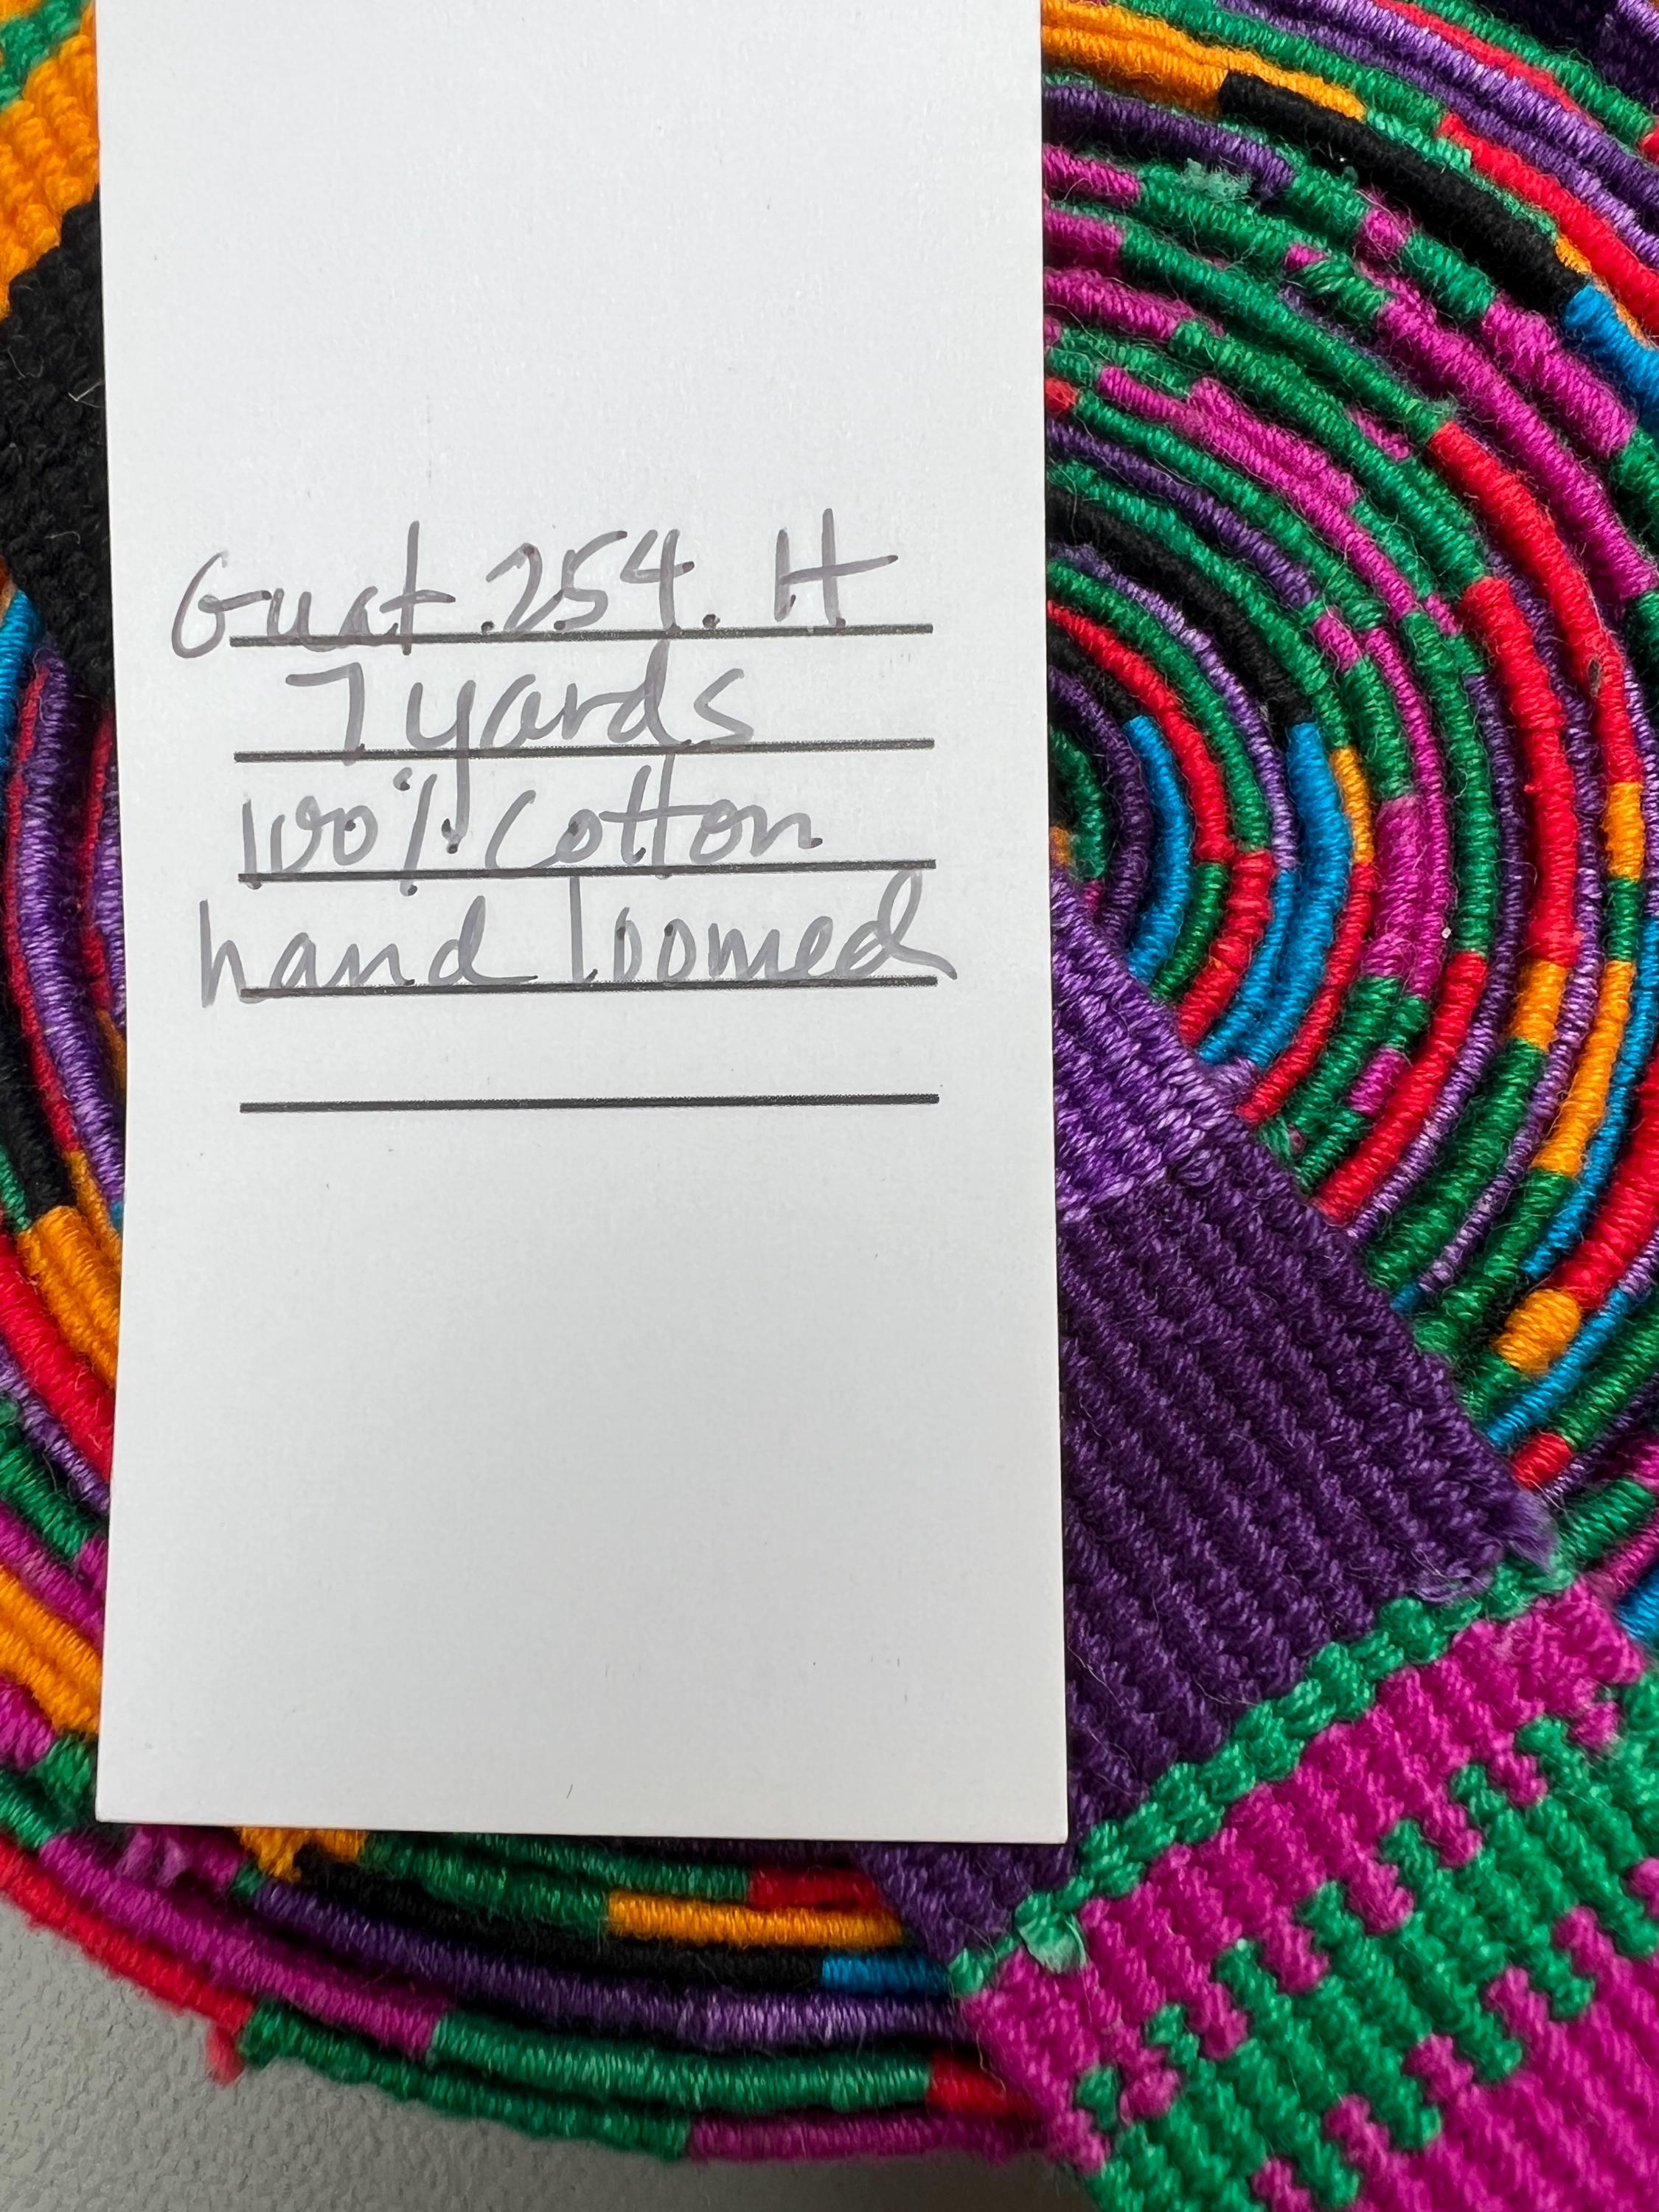 Guat.254.H
7 yards
100% Cotton
hand loomed